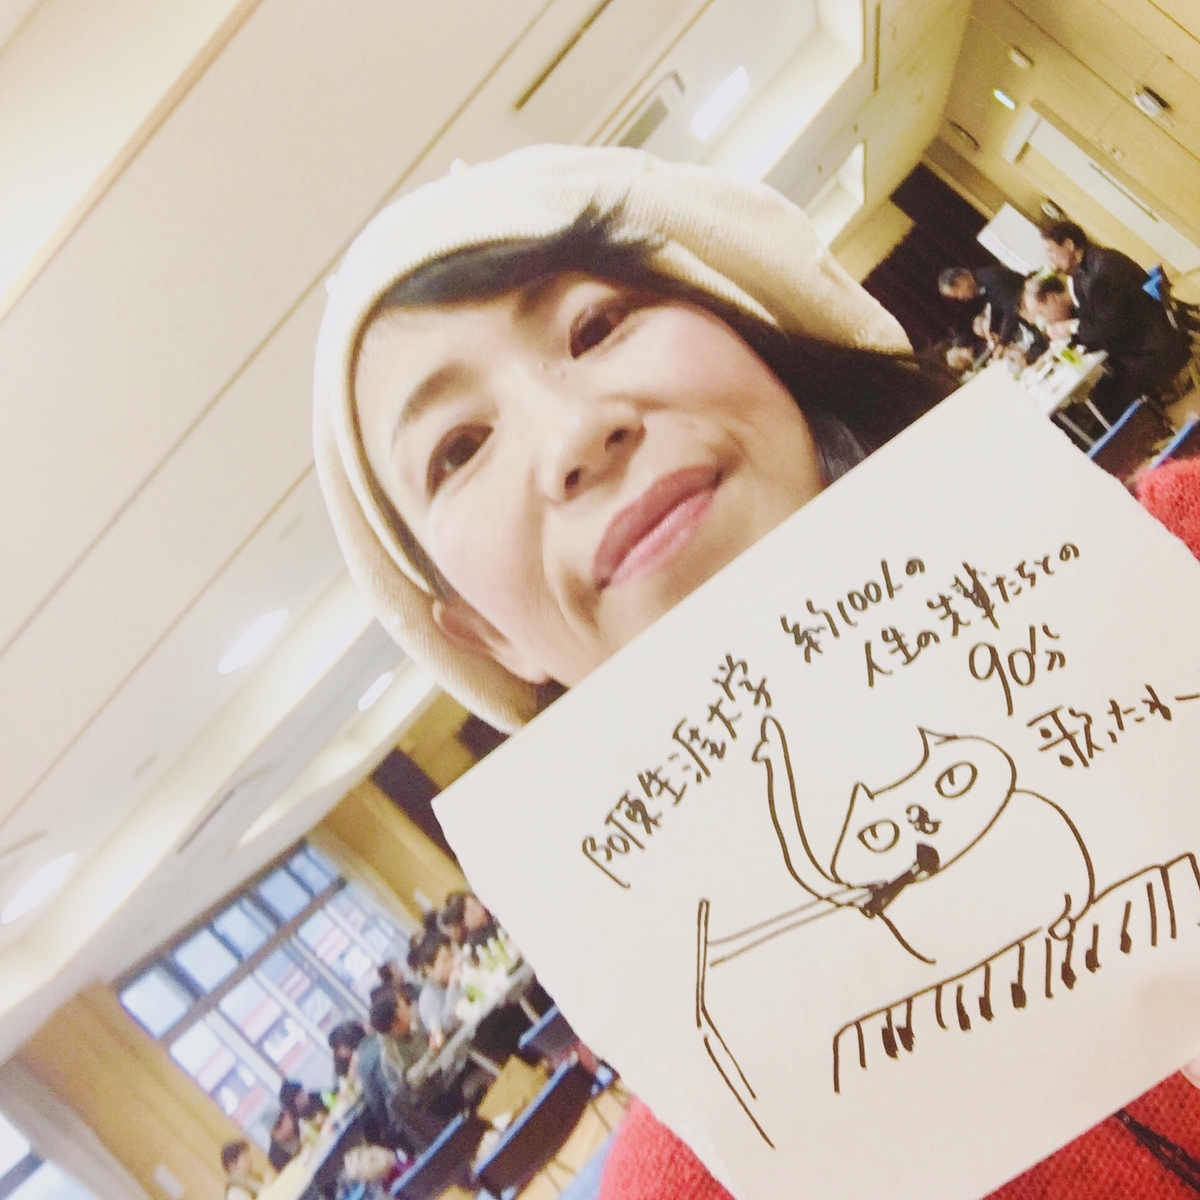 阿東生涯大学
約100人の
人生の先輩たちとの
90分
歌ったねー